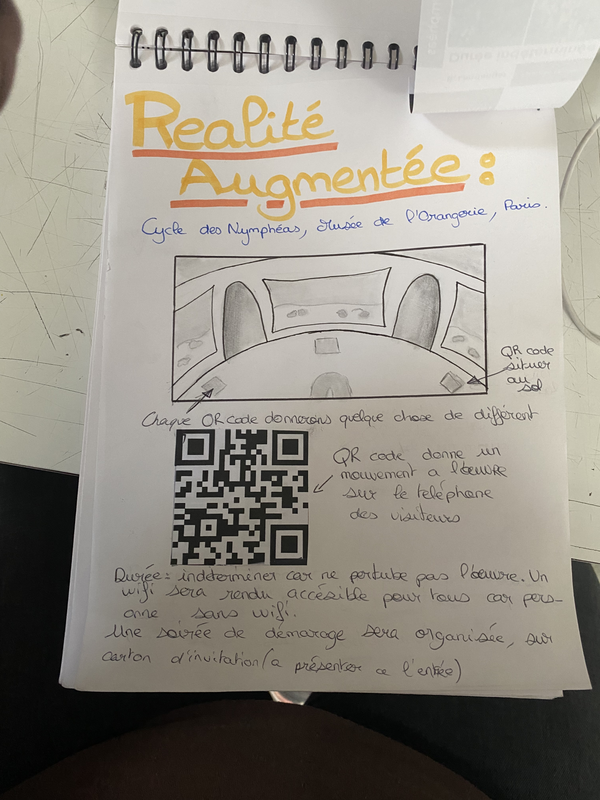 Durée indéterminée
Realité
Augmentée :
Cycle des Nymphéas, Musée de l'Orangerie, Paris.
QR code
situer
au sol
Chaque QR code donnerons quelque chose de différent
QR code donne un
mouvement a l'oeuvre
sur le téléphone
des visiteurs
Durée : indéterminer car ne pertube pas l'oeuvre. Un
wifi sera rendu accésible pour tous car pers-
onne sans wifi.
Une soirée de démarage sera organisée, sur
carton d'invitation (a présenter a l'entrée)